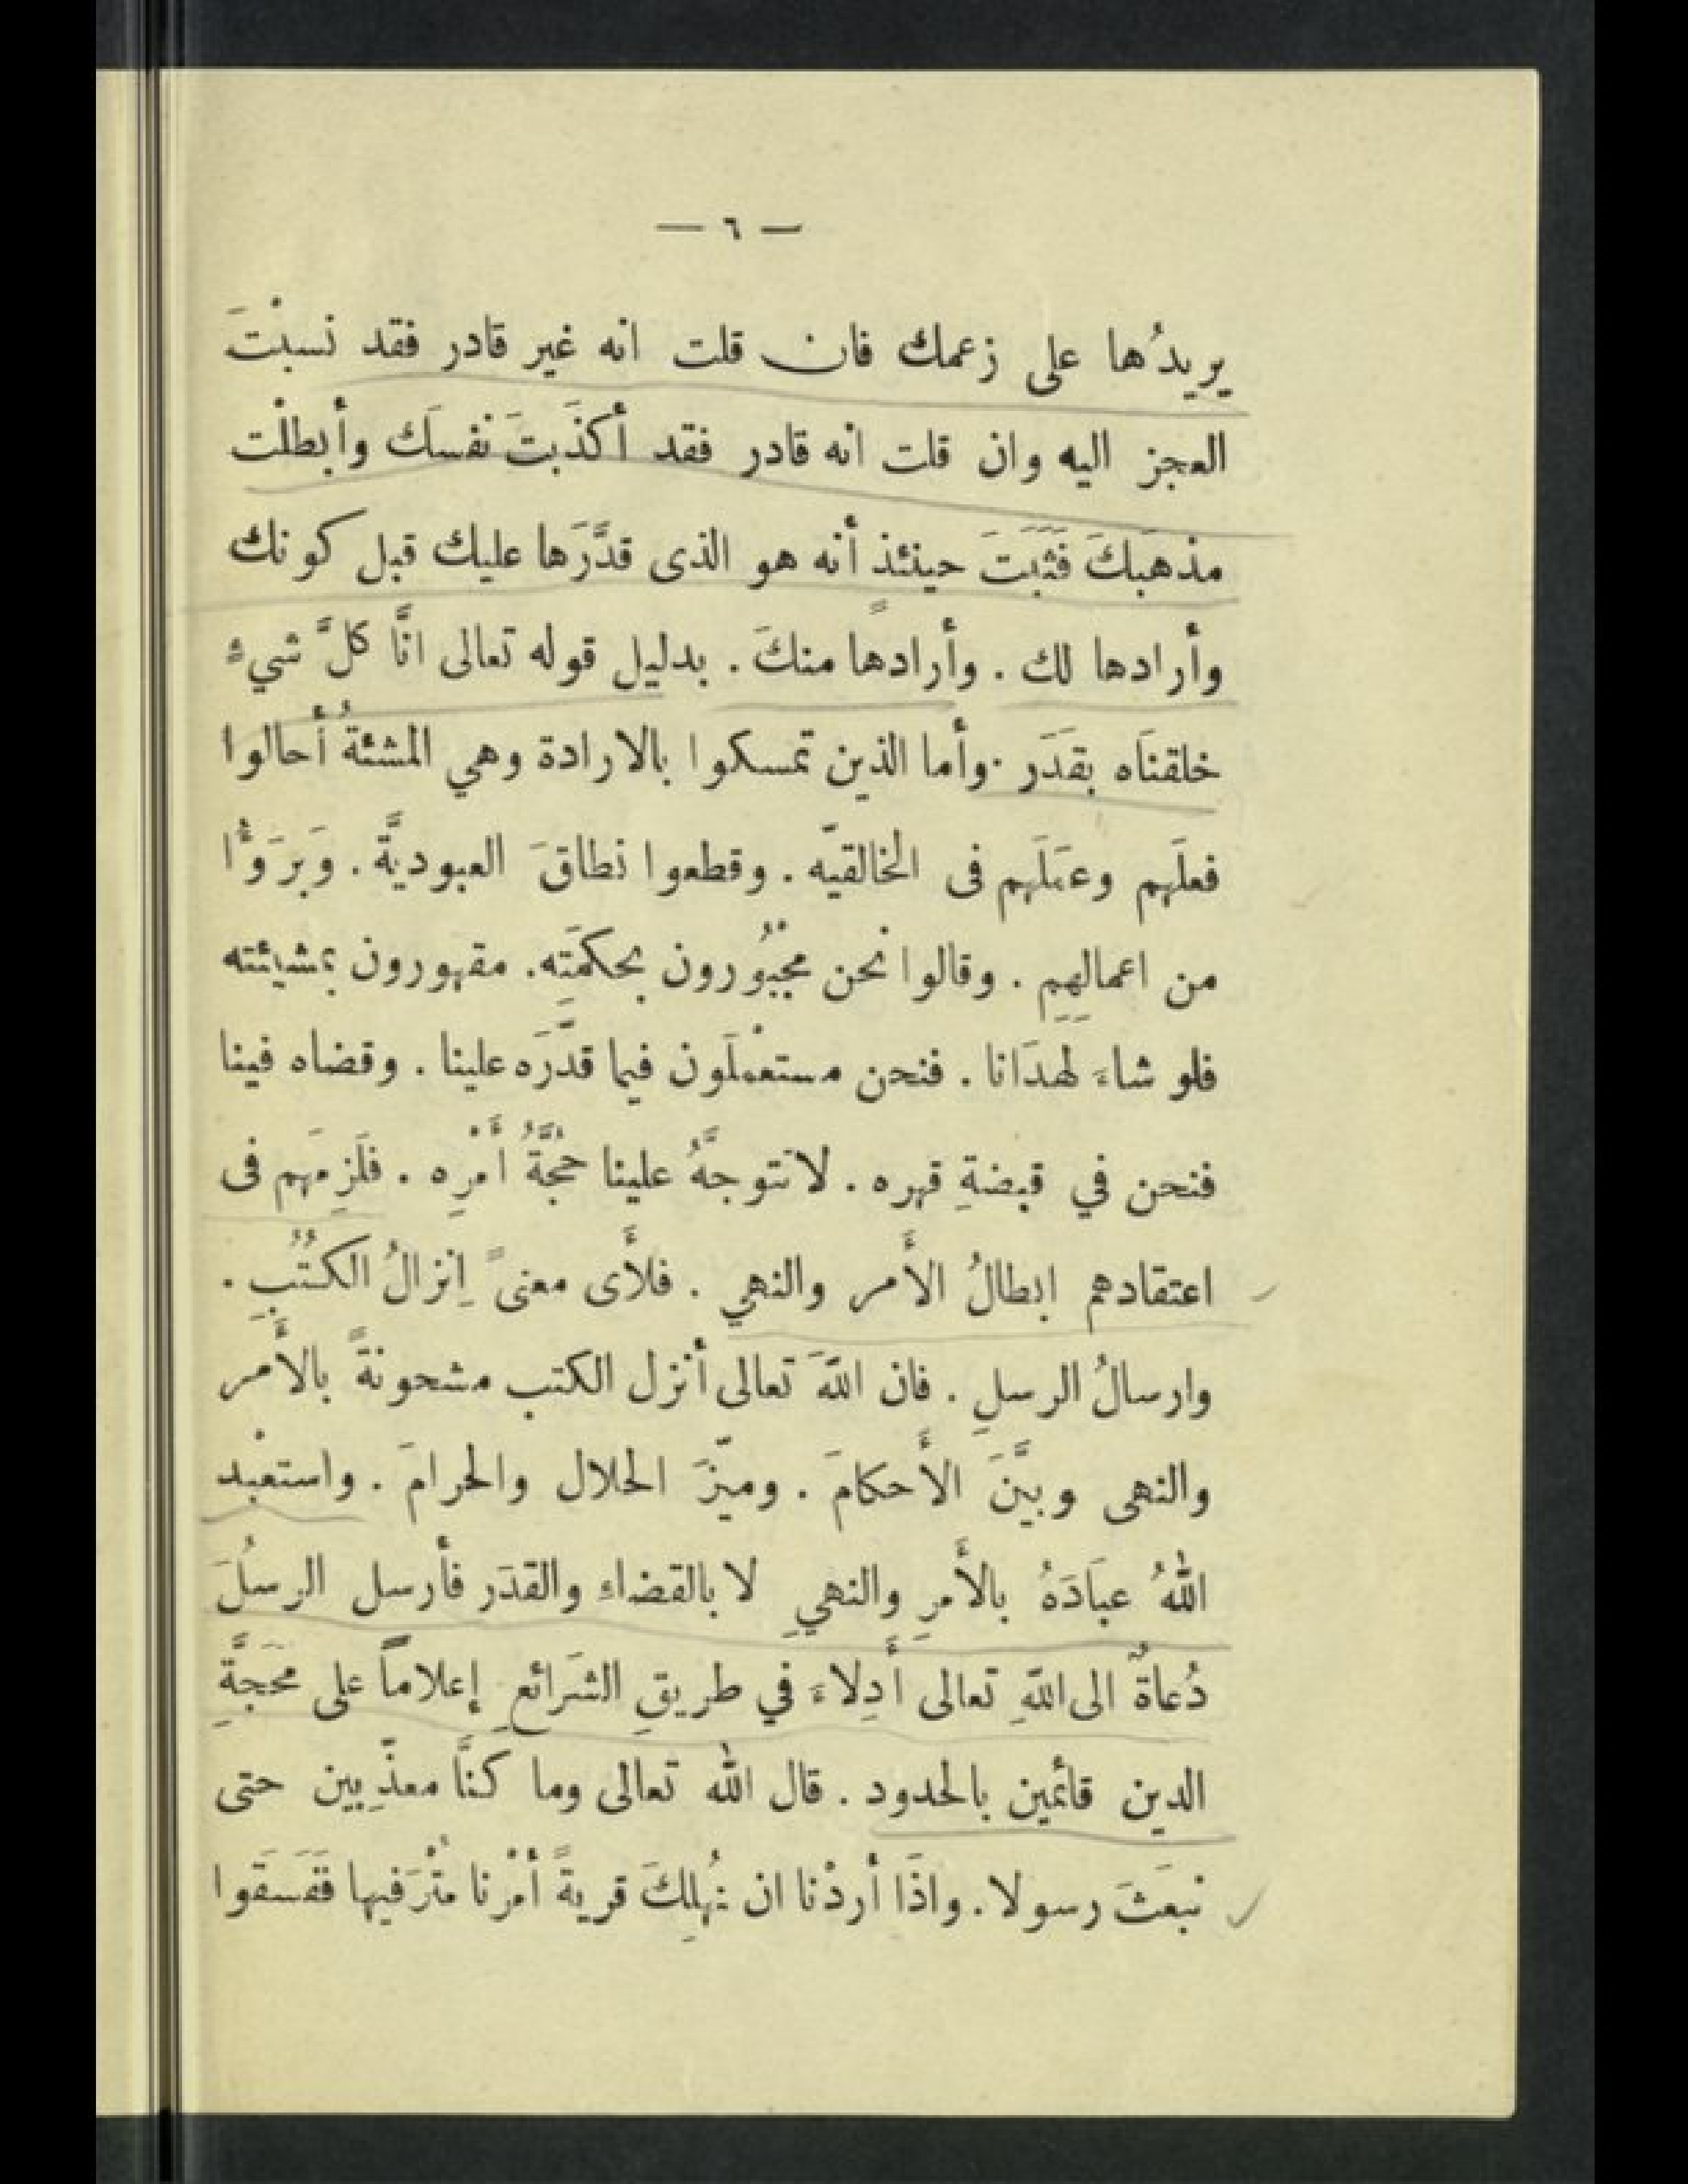 — ٦ —
يريدُها على زعمك فان قلت انه غير قادر فقد نسبْتَ
العجز اليه وان قلت انه قادر فقد أكذَبتَ نفسَك وأبطلْت
مذهَبكَ فَثَبَتَ حينئذ أنه هو الذى قدَّرَها عليك قبل كونك
وأرادها لك . وأرادهاً منكَ . بدليل قوله تعالى انَّا كلَّ شيءٍ
خلقنَاه بقَدَر . وأما الذين تمسكوا بالارادة وهي المشئةُ أَحالوا
فعلَهم وعمَلَهم فى الخالقيّه . وقطعوا نطاقَ العبوديَّة . وَبرَوَّا
من اعمالِهِم . وقالوا نحن مجْبُورون بحكمَتِه . مقهورون بمشيئته
فلو شاءَ لهدَانا . فنحن مستعْملَون فيما قدَّرَه علينا . وقضاه فينا
فنحن في قبضةِ قهره . لا تتوجهُ علينا حُجَّةُ أَمْرِه . فلَزِمَهم فى
اعتقادهم ابطالُ الأَمر والنهي . فلأَى معنىً اِنزالُ الكتُبِ .
وارسالُ الرسلِ . فان اللّهَ تعالى أنزل الكتب مشحونةً بالأَمر
والنهى وبيَّنَ الأَحكامَ . وميّزَ الحلال والحرامَ . واستعْبد
اللهُ عبَادَهُ بالأَمرِ والنهيِ لا بالقضاءِ والقدَر فأرسل الرسُلَ
دُعاةً الى اللّهِ تعالى أَدِلاءَ في طريقِ الشَرائعِ إعلاماً على محَجَّةِ
الدين قائمين بالحدود . قال الله تعالى وما كنَّا معذّبِين حتى
نبعَثَ رسولا . واذَا أردْنا ان نُهلِكَ قريةً أمْرنا مُتْرَفيها فَفَسَقَوا